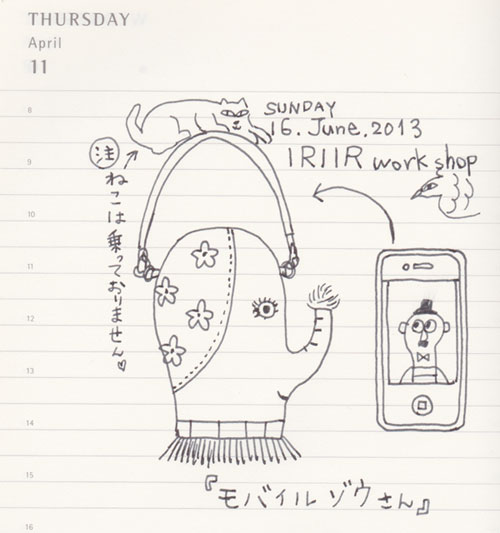 THURSDAY
April
11
SUNDAY
16. June. 2013
IRIIR work shop
注
ねこは乗っておりません♡
8
9
10
11
12
13
14
15
16
『モバイルゾウさん』